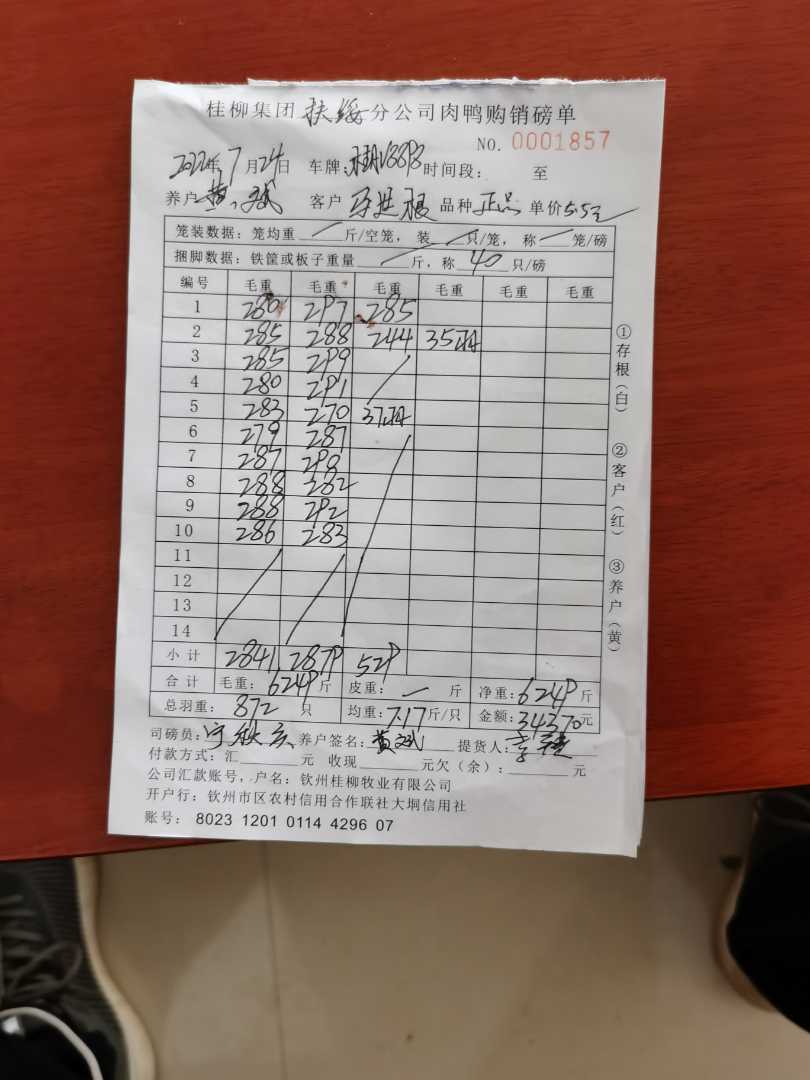 桂柳集团扶绥分公司肉鸭购销磅单
NO. 0001857
2022年7月24日 车牌: 时间段: 至
养户 黄 斌 客户 品种 正品 单价 5.5元
笼装数据: 笼均重 / 斤/空笼, 装 / 只/笼, 称 / 笼/磅
捆脚数据: 铁筐或板子重量 / 斤, 称 40 只/磅
编号 毛重 毛重 毛重 毛重 毛重 毛重
1 280 297 285
2 285 288 244 35羽
3 285 299
4 280 291
5 283 270 37羽
6 279 287
7 287 290
8 288 282
9 288 292
10 286 283
11
12
13
14
小计 2841 2879 529
合计 毛重: 6249 斤 皮重: — 斤 净重: 6249 斤
总羽重: 872 只 均重: 7.17 斤/只 金额: 34370 元
司磅员: 养户签名: 黄斌 提货人: 李
付款方式: 汇 元 收现 元欠(余): 元
公司汇款账号, 户名: 钦州桂柳牧业有限公司
开户行: 钦州市区农村信用合作联社大垌信用社
账号: 8023 1201 0114 4296 07
①存根(白) ②客户(红) ③养户(黄)